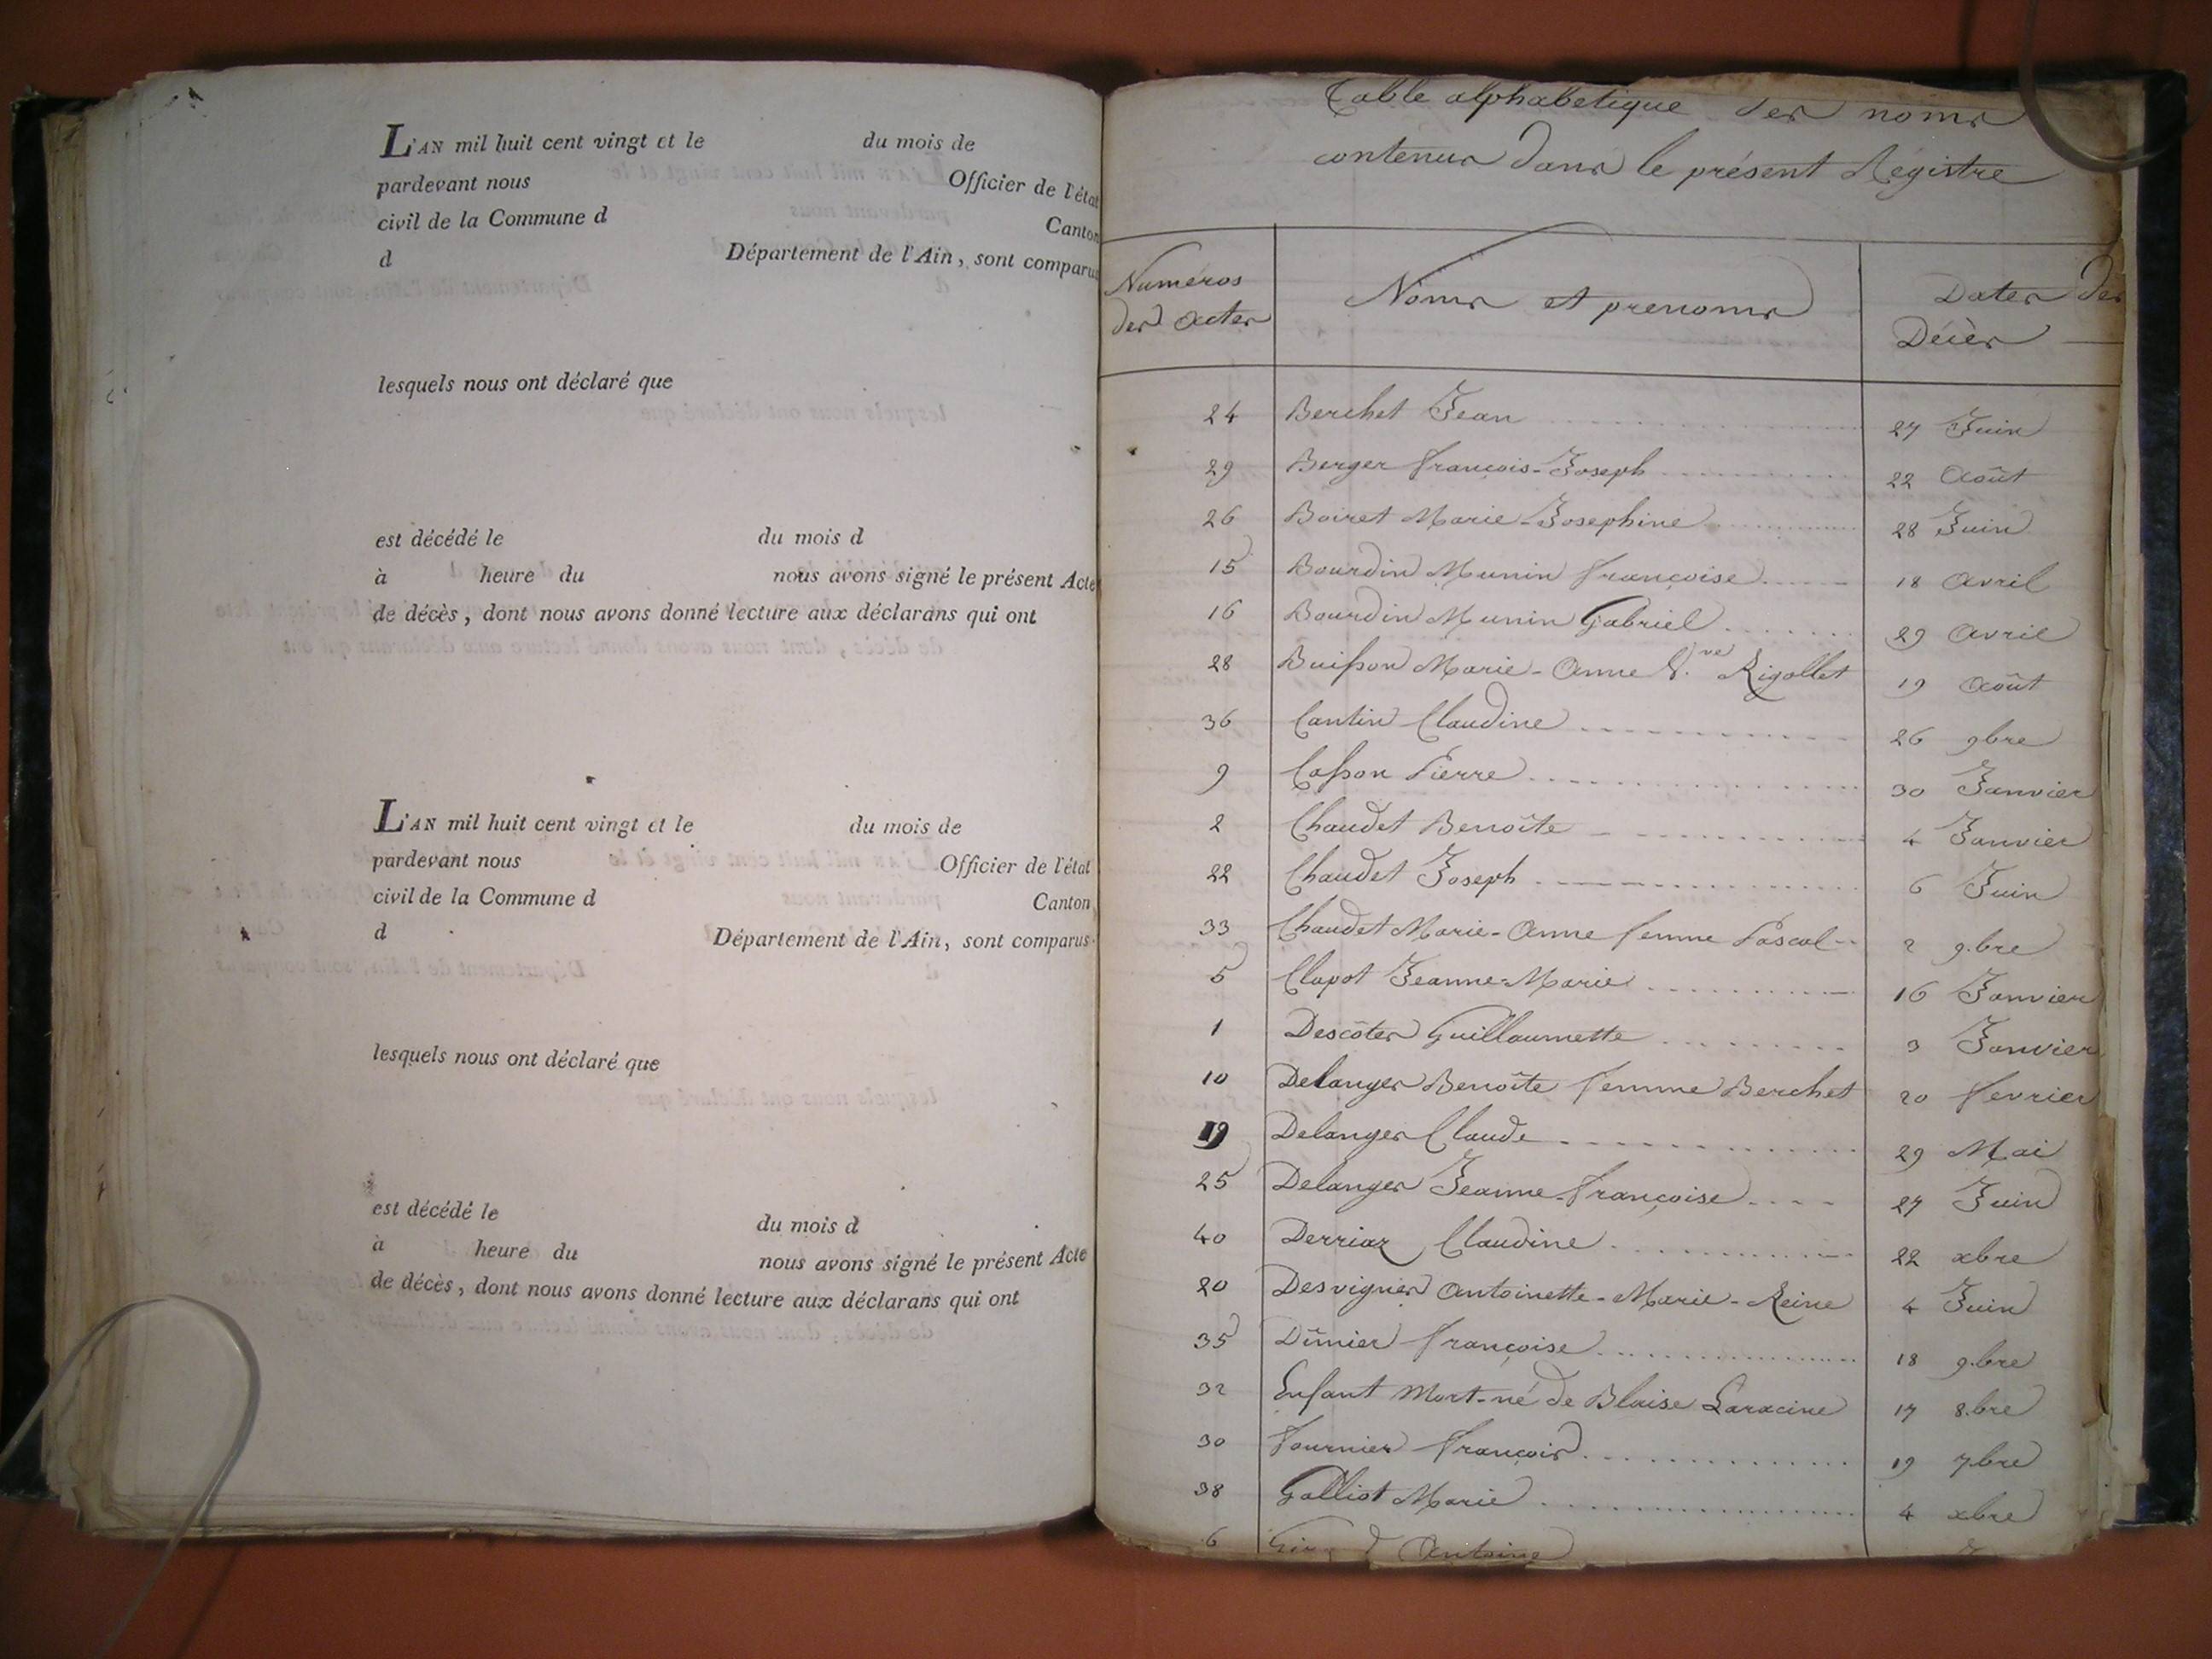 L'AN mil huit cent vingt et le du mois de
pardevant nous Officier de l'état
civil de la Commune d Canton
d Département de l'Ain, sont comparus
lesquels nous ont déclaré que
est décédé le du mois d
à heure du nous avons signé le présent Acte
de décès, dont nous avons donné lecture aux déclarans qui ont
L'AN mil huit cent vingt et le du mois de
pardevant nous Officier de l'état
civil de la Commune d Canton
d Département de l'Ain, sont comparus
lesquels nous ont déclaré que
est décédé le du mois d
à heure du nous avons signé le présent Acte
de décès, dont nous avons donné lecture aux déclarans qui ont
Table alphabetique des noms
contenus dans le présent Régistre
Numéros des actes Noms et prenoms Dates des Décès
24 Berchet Jean 27 Juin
29 Berger François-Joseph 22 Août
26 Boiret Marie-Josephine 28 Juin
15 Bourdin Munin Françoise 18 Avril
16 Bourdin Munin Gabriel 29 Avril
28 Buisson Marie-Anne V.ve Rigollet 19 Août
36 Cantin Claudine 26 9bre
9 Casson Pierre 30 Janvier
2 Chaudet Benoîte 4 Janvier
22 Chaudet Joseph 6 Juin
33 Chaudet Marie-Anne femme Pascal 2 9.bre
5 Clapot Jeanne-Marie 16 Janvier
1 Descôtes Guillaumette 3 Janvier
10 Delanges Benoîte femme Berchet 20 Fevrier
19 Delanges Claude 29 Mai
25 Delanges Jeanne-Françoise 27 Juin
40 Derriaz Claudine 22 xbre
20 Desvignes Antoinette-Marie-Reine 4 Juin
35 Dîmier Françoise 18 9.bre
32 Enfant Mort-né de Blaise Laracine 17 8.bre
30 Fournier François 19 7bre
38 Galliot Marie 4 xbre
6 Antoine